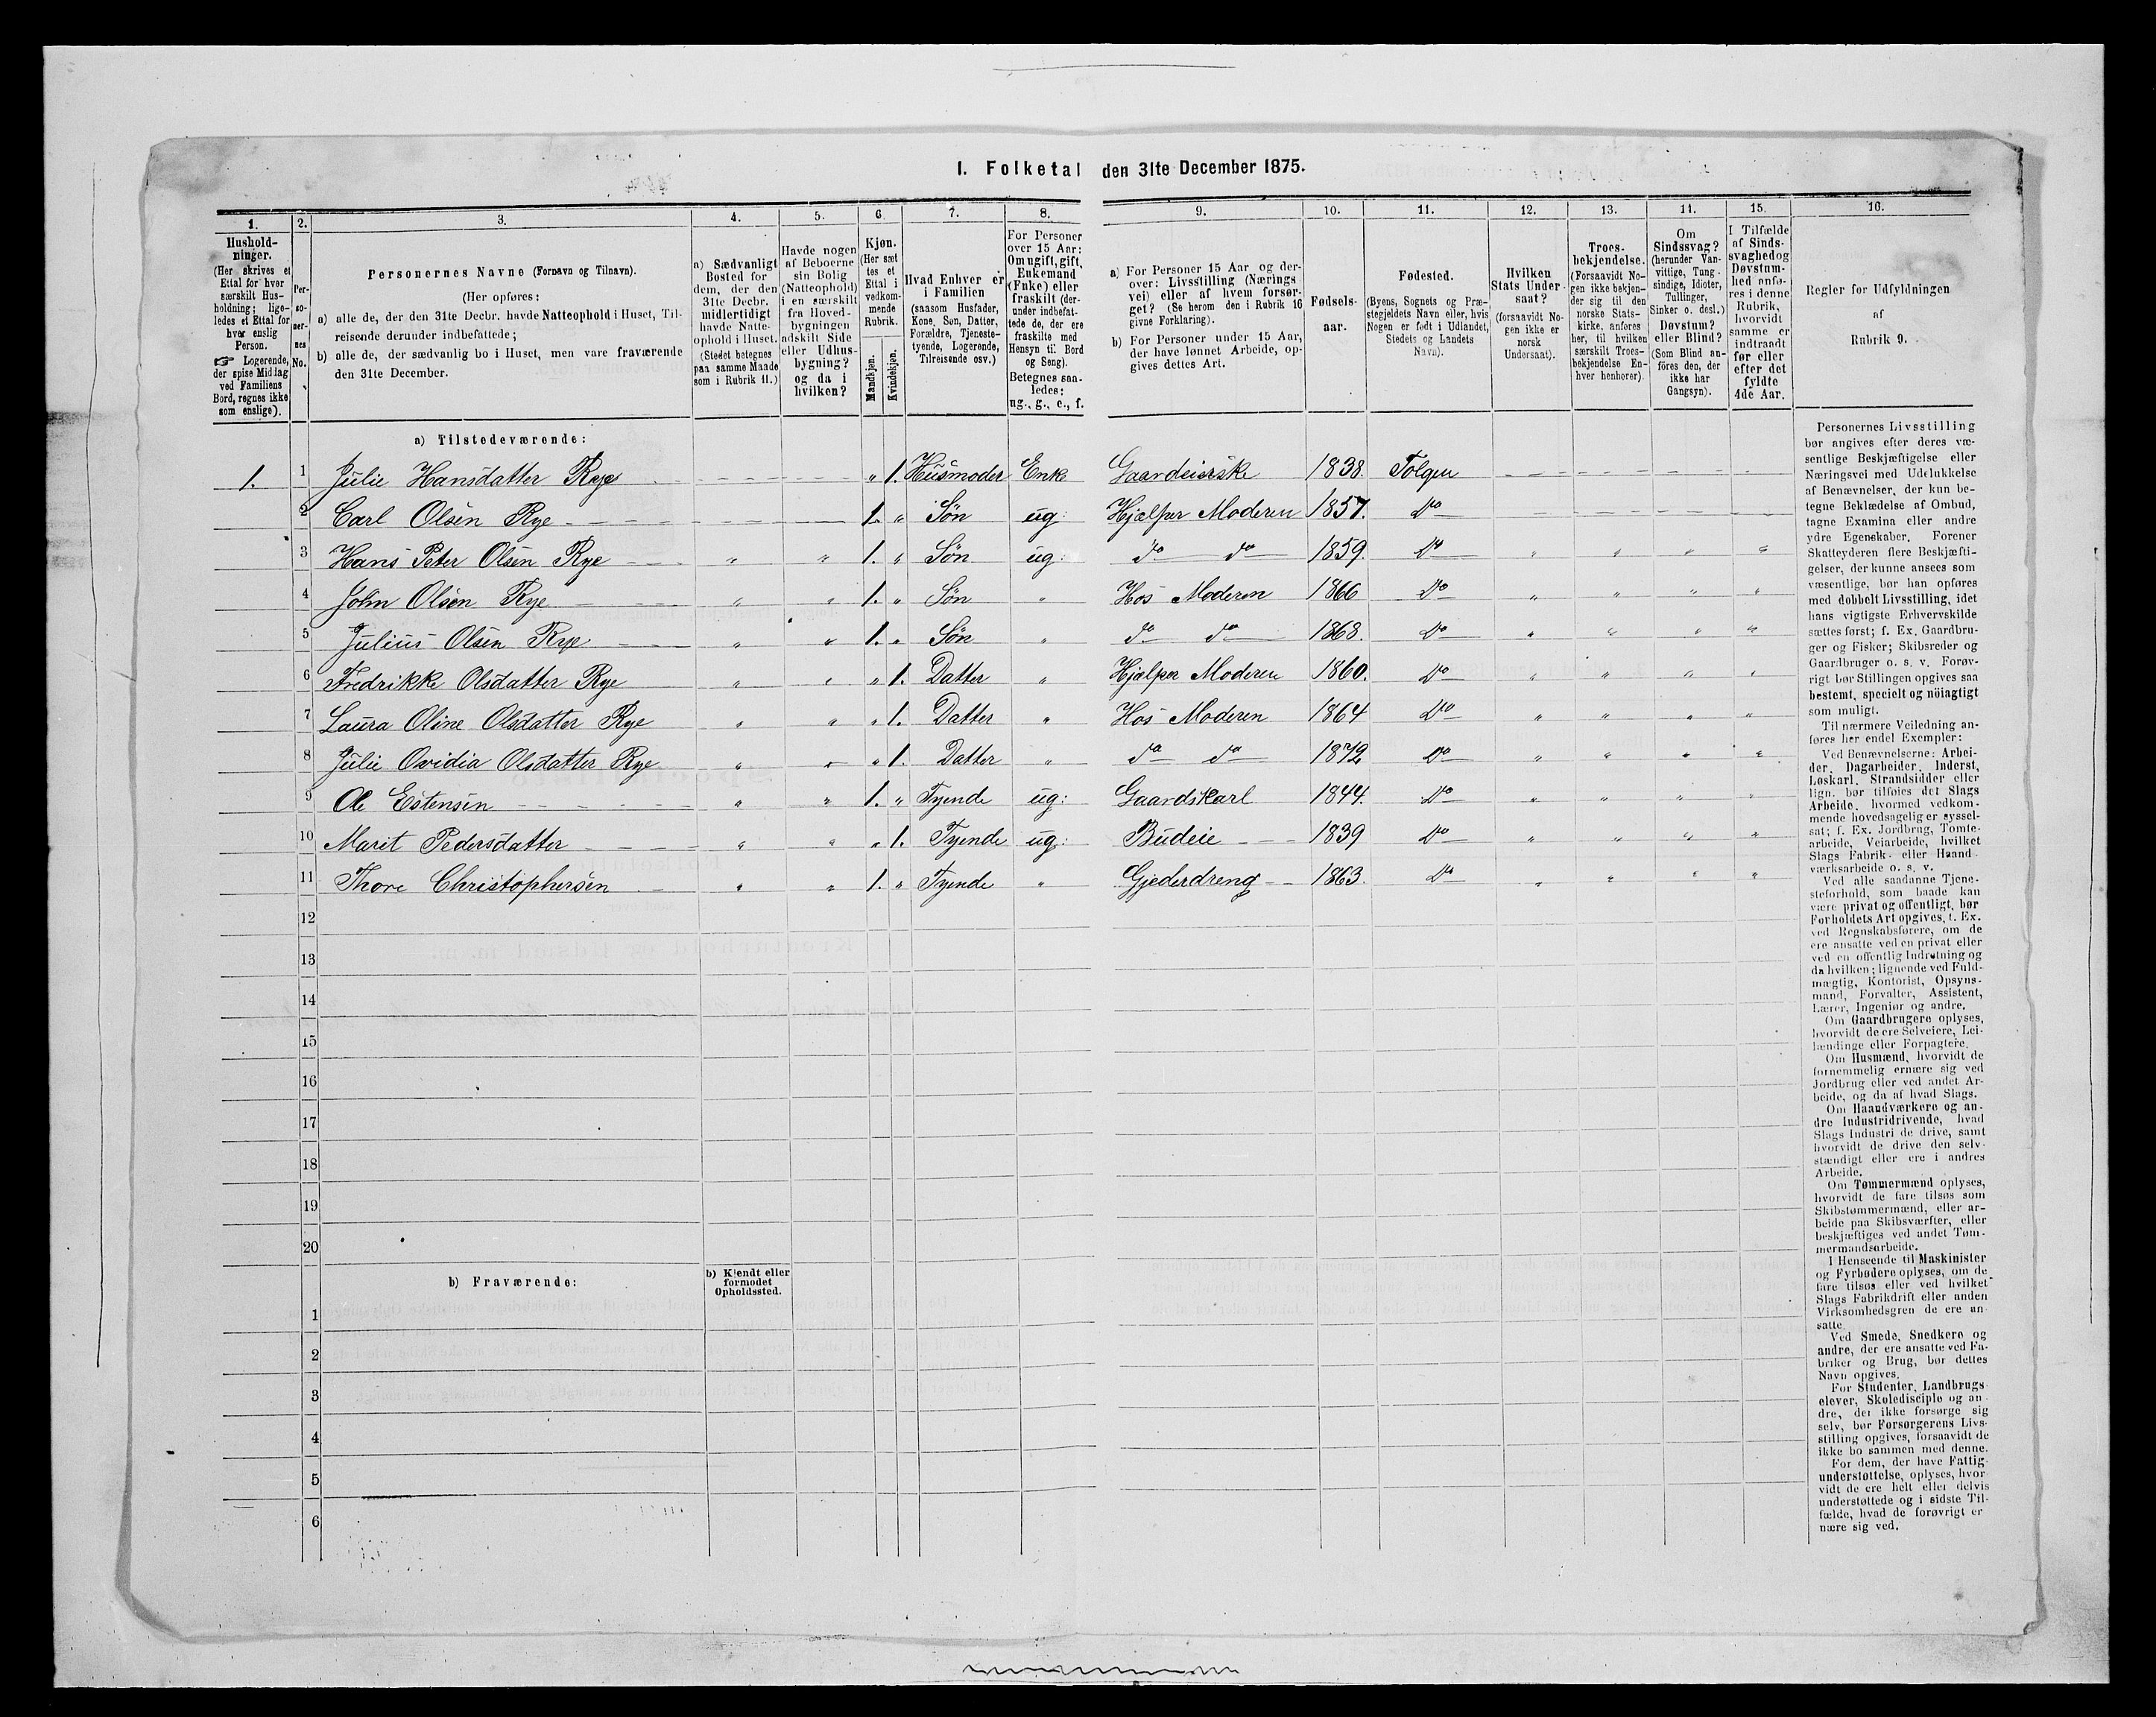 I. Folketal den 31te December 1875.
1. 2. 3. 4. 5. 6. 7. 8. 9. 10. 11. 12. 13. 14. 15. 16.
Hushold-
ninger.
(Her skrives et
Ettal for hver
særskilt Hus-
holdning; lige-
ledes et Ettal for
hver enslig
Person.
☞ Logerende,
der spise Middag
ved Familiens
Bord, regnes ikke
som enslige).
Per-
so-
ner-
nes
No.
Personernes Navne (Fornavn og Tilnavn).
(Her opføres:
a) alle de, der den 31te Decbr. havde Natteophold i Huset, Til-
reisende derunder indbefattede;
b) alle de, der sædvanlig bo i Huset, men vare fraværende
den 31te December.
a) Sædvanligt
Bosted for
dem, der den
31te Decbr.
midlertidigt
havde Natte-
ophold i Huset.
(Stedet betegnes
paa samme Maade
som i Rubrik 11.)
Havde nogen
af Beboerne
sin Bolig
(Natteophold)
i en særskilt
fra Hoved-
bygningen
adskilt Side
eller Udhus-
bygning?
og da i
hvilken?
Kjøn.
(Her sæt
tes et
Ettal i
vedkom-
mende
Rubrik.
Mandkjøn.
Kvindekjøn.
Hvad Enhver er
i Familien
(saasom Husfader,
Kone, Søn, Datter,
Forældre, Tjeneste-
tyende, Logerende,
Tilreisende osv.)
For Personer
over 15 Aar:
Om ugift, gift,
Enkemand
(Enke) eller
fraskilt (der-
under indbefat-
tede de, der ere
fraskilte med
Hensyn til Bord
og Seng).
Betegnes saa-
ledes:
ug., g., e., f.
a) For Personer 15 Aar og der-
over: Livsstilling (Nærings-
vei) eller af hvem forsør-
get? (Se herom den i Rubrik 16
givne Forklaring).
b) For Personer under 15 Aar,
der have lønnet Arbeide, op-
gives dettes Art.
Fødsels-
aar.
Fødested.
(Byens, Sognets og Præ-
stegjeldets Navn eller, hvis
Nogen er født i Udlandet,
Stedets og Landets
Navn).
Hvilken
Stats Under-
saat?
(forsaavidt No-
gen ikke er
norsk
Undersaat).
Troes-
bekjendelse.
(Forsaavidt No-
gen ikke bekjen-
der sig til den
norske Stats-
kirke, anføres
her, til hvilken
særskilt Troes-
bekjendelse En-
hver henhører).
Om
Sindssvag?
(herunder Van-
vittige, Tung-
sindige, Idioter,
Tullinger,
Sinker o. desl.)
Døvstum?
eller Blind?
(Som Blind an-
føres den, der
ikke har
Gangsyn).
I Tilfælde
af Sinds-
svaghed og
Døvstum-
hed anfø-
res i denne
Rubrik,
hvorvidt
samme er
indtraadt
før eller
efter det
fyldte
4de Aar.
Regler for Udfyldningen
af
Rubrik 9.
a) Tilstedeværende:
1. 1 Julie Hansdatter Rye " 1. Husmoder Enke Gaardeierske 1838. Tolgen
2 Carl Olsen Rye 1. " Søn ug: Hjælper Moderen 1857. Do
3 Hans Peter Olsen Rye " " 1. " Søn ug: do do 1859. Do " " " "
4 John Olsen Rye " " 1. " Søn " Hos Moderen 1866 Do " " " "
5 Julius Olsen Rye " " 1. " Søn " do do 1868. Do " " " "
6 Fredrikke Olsdatter Rye " " " 1. Datter " Hjælper Moderen 1860. Do " " " "
7 Laura Oline Olsdatter Rye " " " 1. Datter " Hos Moderen 1864 Do " " " "
8 Julie Ovidia Olsdatter Rye " " " 1. Datter " do do 1872 Do " " " "
9 Ole Estensen " " 1. " Tyende ug: Gaardskarl 1844. Do " " " "
10 Marit Pedersdatter " " " 1. Tyende ug: Budeie 1839 Do " " " "
11 Thore Christophersen " " 1. " Tyende " Gjederdreng 1863. Do " " " "
12
13
14
15
16
17
18
19
20
b) Fraværende:
b) Kjendt eller
formodet
Opholdssted.
1
2
3
4
5
6
Personernes Livsstilling
bør angives efter deres væ-
sentlige Beskjæftigelse eller
Næringsvei med Udelukkelse
af Benævnelser, der kun be-
tegne Beklædelse af Ombud,
tagne Examina eller andre
ydre Egenskaber. Forener
Skatteyderen flere Beskjæfti-
gelser, der kunne ansees som
væsentlige, bør han opføres
med dobbelt Livsstilling, idet
hans vigtigste Erhvervskilde
sættes først; f. Ex. Gaardbru-
ger og Fisker; Skibsreder og
Gaardbruger o. s. v. Forøv-
rigt bør Stillingen opgives saa
bestemt, specielt og nöiagtigt
som muligt.
Til nærmere Veiledning an-
føres her endel Exempler:
Ved Benævnelserne: Arbei-
der, Dagarbeider, Inderst,
Løskarl, Strandsidder eller
lign. bør tilføies det Slags
Arbeide, hvormed vedkom-
mende hovedsagelig er syssel-
sat; f. Ex. Jordbrug, Tomte-
arbeide, Veiarbeide, hvilket
Slags Fabrik- eller Haand-
værksarbeide o. s. v.
Ved alle saadanne Tjene-
steforhold, som baade kan
være privat og offentligt, bør
Forholdets Art opgives, f. Ex.
ved Regnskabsførere, om de
ere ansatte ved en privat eller
ved en offentlig Indretning og
da hvilken; lignende ved Fuld-
mægtig, Kontorist, Opsyns-
mand, Forvalter, Assistent,
Lærer, Ingeniør og andre.
Om Gaardbrugere oplyses,
hvorvidt de ere Selveiere, Lei-
lændinge eller Forpagtere.
Om Husmænd, hvorvidt de
fornemmelig ernære sig ved
Jordbrug eller ved andet Ar-
beide, og da af hvad Slags.
Om Haandværkere og an-
dre Industridrivende, hvad
Slags Industri de drive, samt
hvorvidt de drive den selv-
stændigt eller ere i andres
Arbeide.
Om Tømmermænd oplyses,
hvorvidt de fare tilsøs som
Skibstømmermænd, eller ar-
beide paa Skibsværfter, eller
beskjæftiges ved andet Tøm-
mermandsarbeide.
I Henseende til Maskinister
og Fyrbødere oplyses, om de
fare tilsøs eller ved hvilket
Slags Fabrikdrift eller anden
Virksomhedsgren de ere an-
satte.
Ved Smede, Snedkere og
andre, der ere ansatte ved Fa-
briker og Brug, bør dettes
Navn opgives.
For Studenter, Landbrugs-
elever, Skoledisciple og an-
dre, der ikke forsørge sig
selv, bør Forsørgerens Livs-
stilling opgives, forsaavidt de
ikke bo sammen med denne.
For dem, der have Fattig-
understøttelse, oplyses, hvor-
vidt de ere helt eller delvis
understøttede og i sidste Til-
fælde, hvad de forøvrigt er-
nære sig ved.